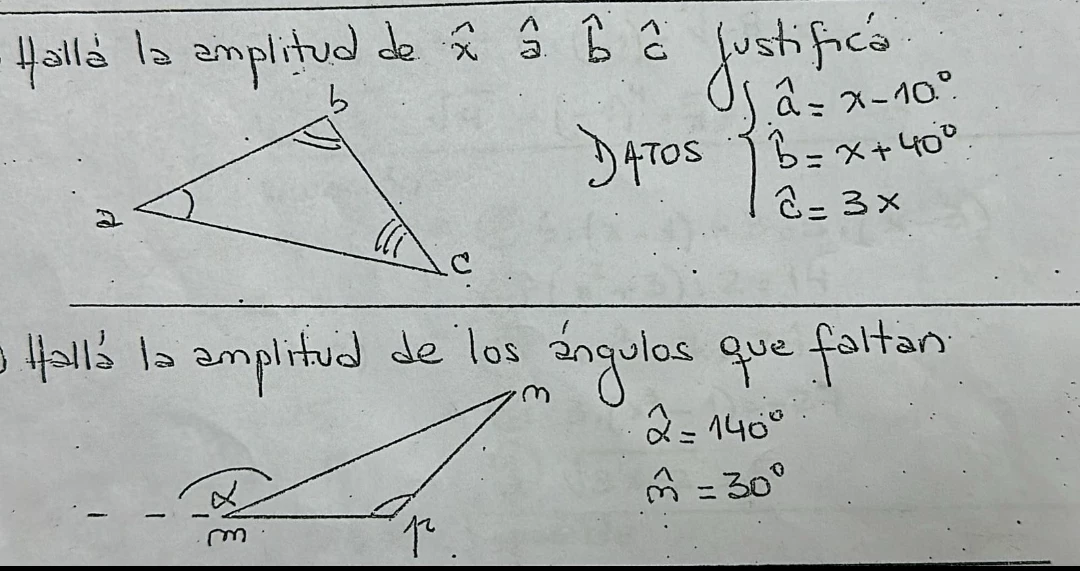 Hallá la amplitud de x̂ â b̂ ĉ Justificá
b
a
c
DATOS { â = x - 10°
b̂ = x + 40°
ĉ = 3x
) Hallá la amplitud de los ángulos que faltan
n
α
m
p
α̂ = 140°
n̂ = 30°